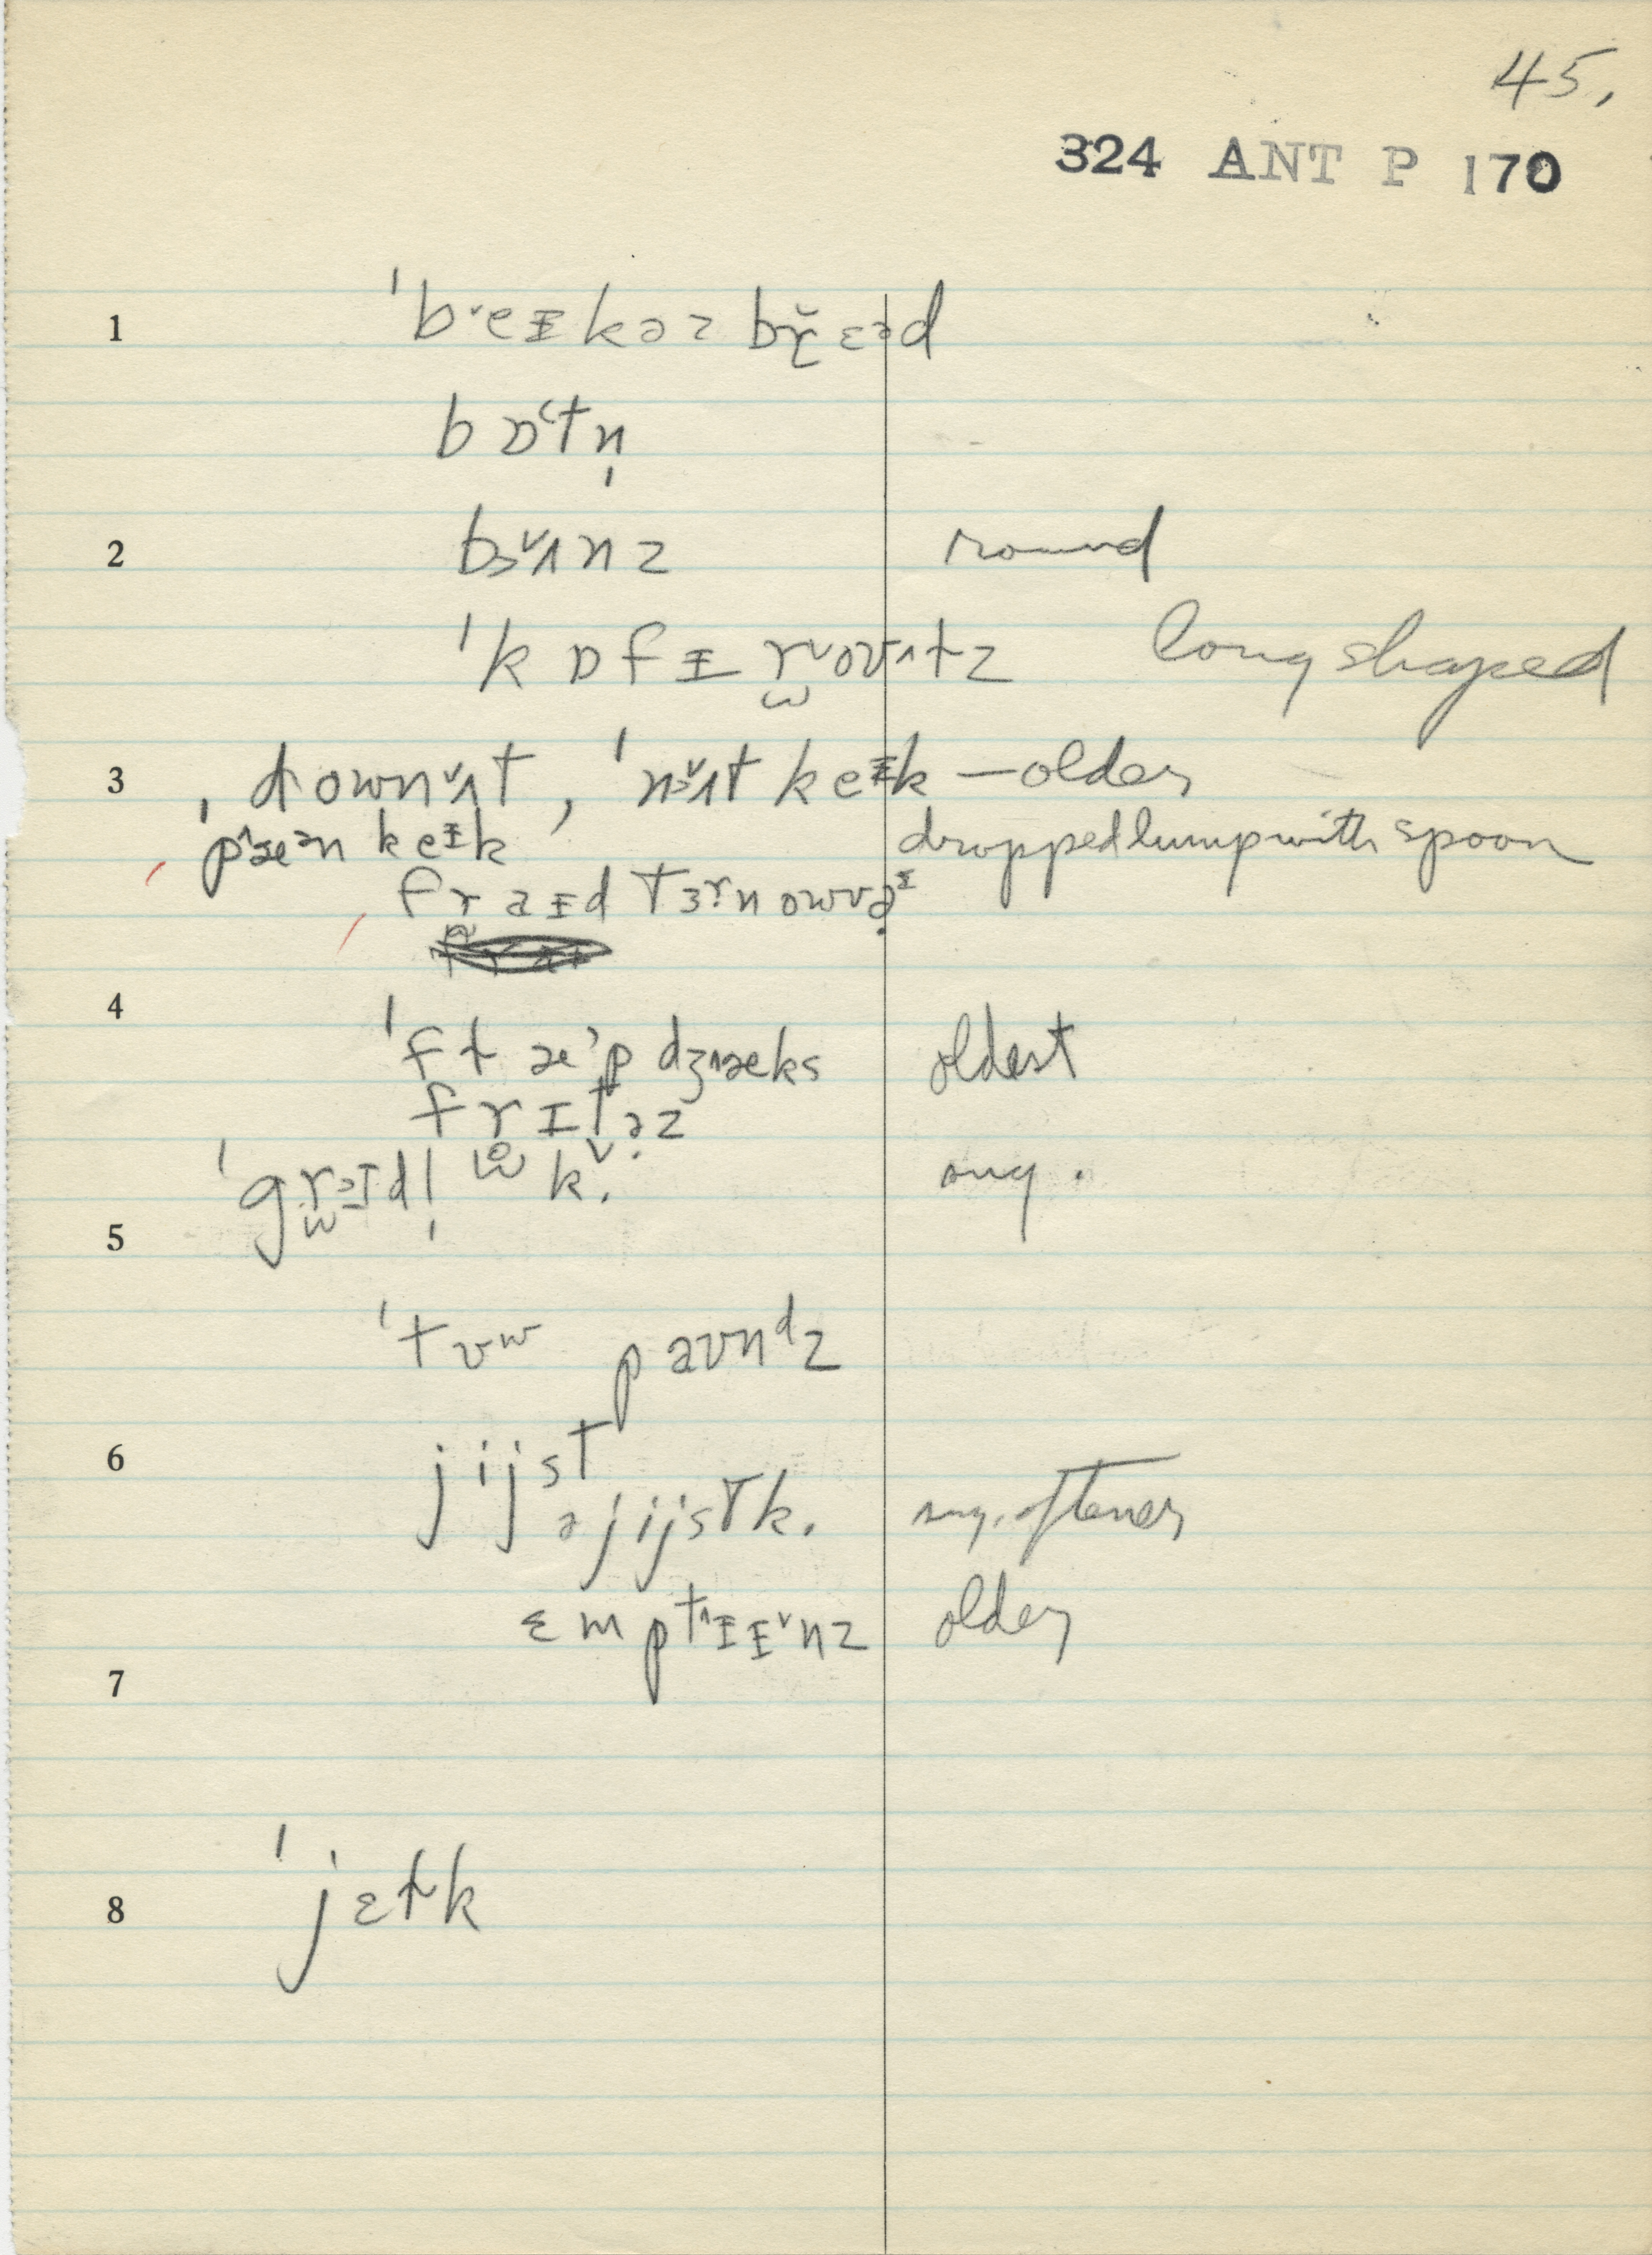 45.
324 ANT P 170
1 ˈb˅eɪkəz br̬ɛəd
bɒ˂tn̩
2 bɜ˅ʌnz round
ˈkɒfɪ r̫˅oʊ˄tz long shaped
3 ˌdownʌ˅t, ˈnɜ˅ʌt keɪk — older
p˄æən keɪk dropped lump with spoon
fraɪd tɜrnowvə̣ɪ
4 ˈflæ˃pdʒ˄æks oldest
frɪtəz
ˈgr̫ɪdl̩ k. sug.
5
ˈtʊw paʊnᵈz
6 jijst
ə jijst k. sug. oftener
ɛmpt˄ɪɪ˅nz older
7
8 ˈjɛlk